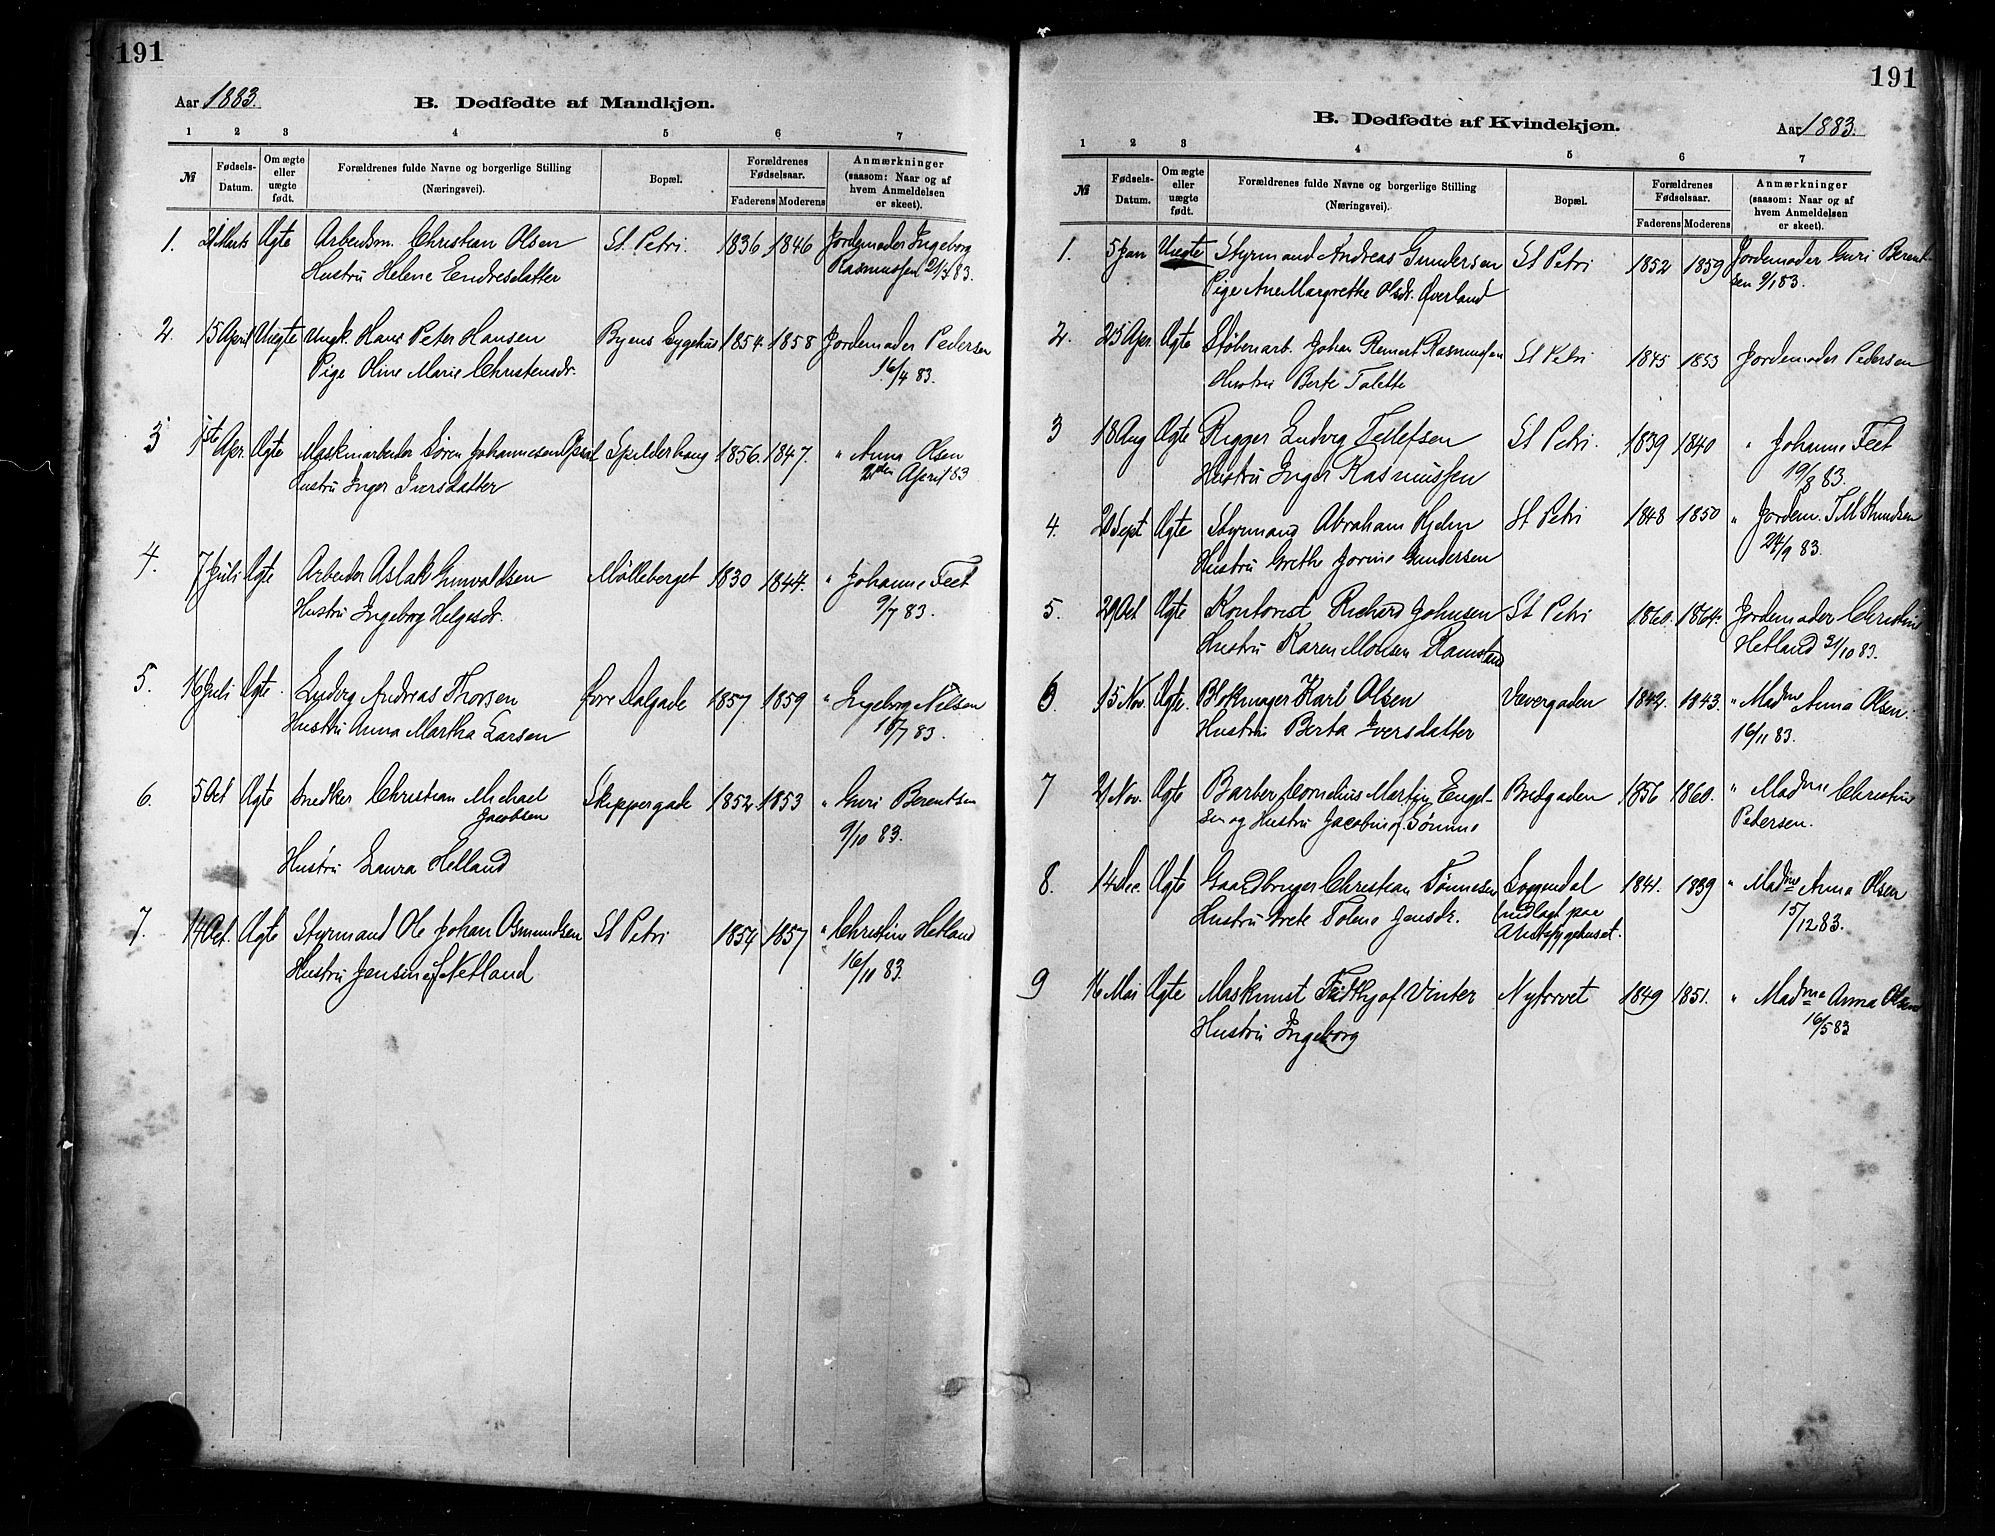 191
Aar 1883.
B. Dødfødte af Mandkjøn.
1 2 3 4 5 6 7
№ Fødsels-Datum. Om ægte eller uægte født. Forældrenes fulde Navne og borgerlige Stilling (Næringsvei). Bopæl. Forældrenes Fødselsaar. Faderens Moderens Anmærkninger (saasom: Naar og af hvem Anmeldelsen er skeet).
1. 21 Marts Ægte Arbeidsm. Christian Olsen St. Petri 1836 1846 Jordemoder Ingeborg
Hustru Helene Endresdatter Rasmussen 83.
2. 15 April Uægte Ungk. Hans Peter Hansen Byens Sygehus 1854 1858 Jordemoder Pedersen
Pige Oline Marie Christensdr. 16/4 83.
3 1ste Apr. Ægte Maskinarbeider Søren Johannesen Spilderhaug 1856. 1847. " Anna Olsen
Hustru Inger Iversdatter 2den April 83
4. 7 Juli Ægte Arbeider Aslak Gunvaldsen Mølleberget 1830 1844. " Johanne Feet
Hustru Ingeborg Helgesdr. 9/7 83.
5. 16 Juli Ægte. Ludvig Andreas Thorsen Øvre Dalgade 1857 1859 " Ingeborg Nilsen
Hustru Anna Martha Larsen /7 83.
6. 5 Oct Ægte Snedker Christian Michael Skippergade 1852 1853 " Guri Berentsen
Jacobsen
9/10 83.
Hustru Laura Hetland
7. 14 Oct. Ægte Styrmand Ole Johan Osmundsen St Petri 1854 1857 " Christine Hetland
Hustru Jensine f Netland 16/11 83.
191
B. Dødfødte af Kvindekjøn.
Aar 1883.
1 2 3 4 5 6 7
№ Fødsels-Datum. Om ægte eller uægte født. Forældrenes fulde Navne og borgerlige Stilling (Næringsvei). Bopæl. Forældrenes Fødselsaar. Faderens Moderens Anmærkninger (saasom: Naar og af hvem Anmeldelsen er skeet).
1. 5 Jan Uægte Styrmand Andreas Gundersen St Petri 1852 1859 Jordemoder Guri Berent-
Pige Ane Margrethe Olsdr. Øverland sen 9/1 83.
2. 25 Apr. Ægte Støbenarb. Johan Reinert Rasmussen St Petri 1845 1853 Jordemoder Pedersen
Hustru Berte Talette
3 18 Aug Ægte Rigger Ludvig Tellefsen St Petri. 1839 1840 " Johanne Feet
Hustru Inger Rasmussen 19/8 83.
4. Sept Ægte Styrmand Abraham Hjelm St Petri 1848 1850 " Jordem. T. M. Knudsen
Hustru Grethe Jorine Gundersen 24/9 83.
5. 29 Oct Ægte Kontorist Richard Johnsen St Petri 1860. 1864. Jordemoder Christine
Hustru Karen Monsen Ramsland Hetland 31/10 83.
6. 15 Nov. Ægte. Blokmager Karl Olsen Vævergaden 1842. 1843. " Madme Anna Olsen.
Hustru Berta Iversdatter 16/11 83.
7 21 Nov. Ægte Barber Cornelius Martin Engel- Bredgaden 1856 1860. " Madme Christine
sen og Hustru Jacobine f. Sømme Pedersen.
8. 14 Dec. Ægte Gaardbruger Christian Tønnesen Soggendal 1841. 1839 " Madme Anna Olsen
Hustru Grete Tolene Jensdr. Indlagt paa 15/12 83.
Amtssygehuset.
9 16 Mai Ægte Maskinist Fridthjof Vinter Nytorvet 1849 1851. " Madme Anna Olsen
Hustru Ingeborg 16/5 83